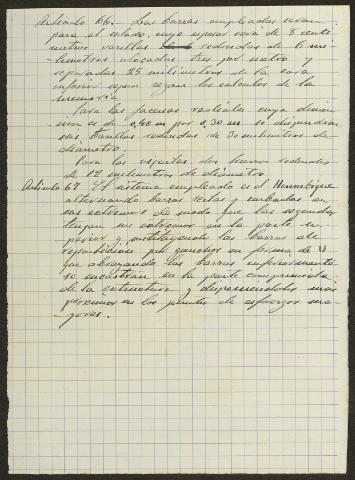 Artículo 66.- Las barras empleadas seran
para el solado, cuyo espesor será de 8 centi-
metros varillas redondas de 6 mi-
limetros colocadas tres por metro y
separadas 25 milimetros de la cara
inferior segun rezan los calculos de la
memoria.
Para las jacenas rectas cuya dimen-
sión es de 0,40 m por 0,30 m se dispondran
seis varillas redondas de 30 milimetros de
diámetro.
Para las viguetas dos hierros redondos
de 12 milimetros de diámetro.
Artículo 67. El sistema empleado es el Hennebique
alternando barras rectas y curvadas en
sus extremos de modo que las segundas
tengan sus extremos en la parte su-
perior y sustituyendo las barras de
repartición por ganchos en forma de U
que abrazando las barras inferiormente
se encastran en la parte comprimida
de la estructura y disponiendolos mas
proximos en los puntos de esfuerzos ma-
yores.